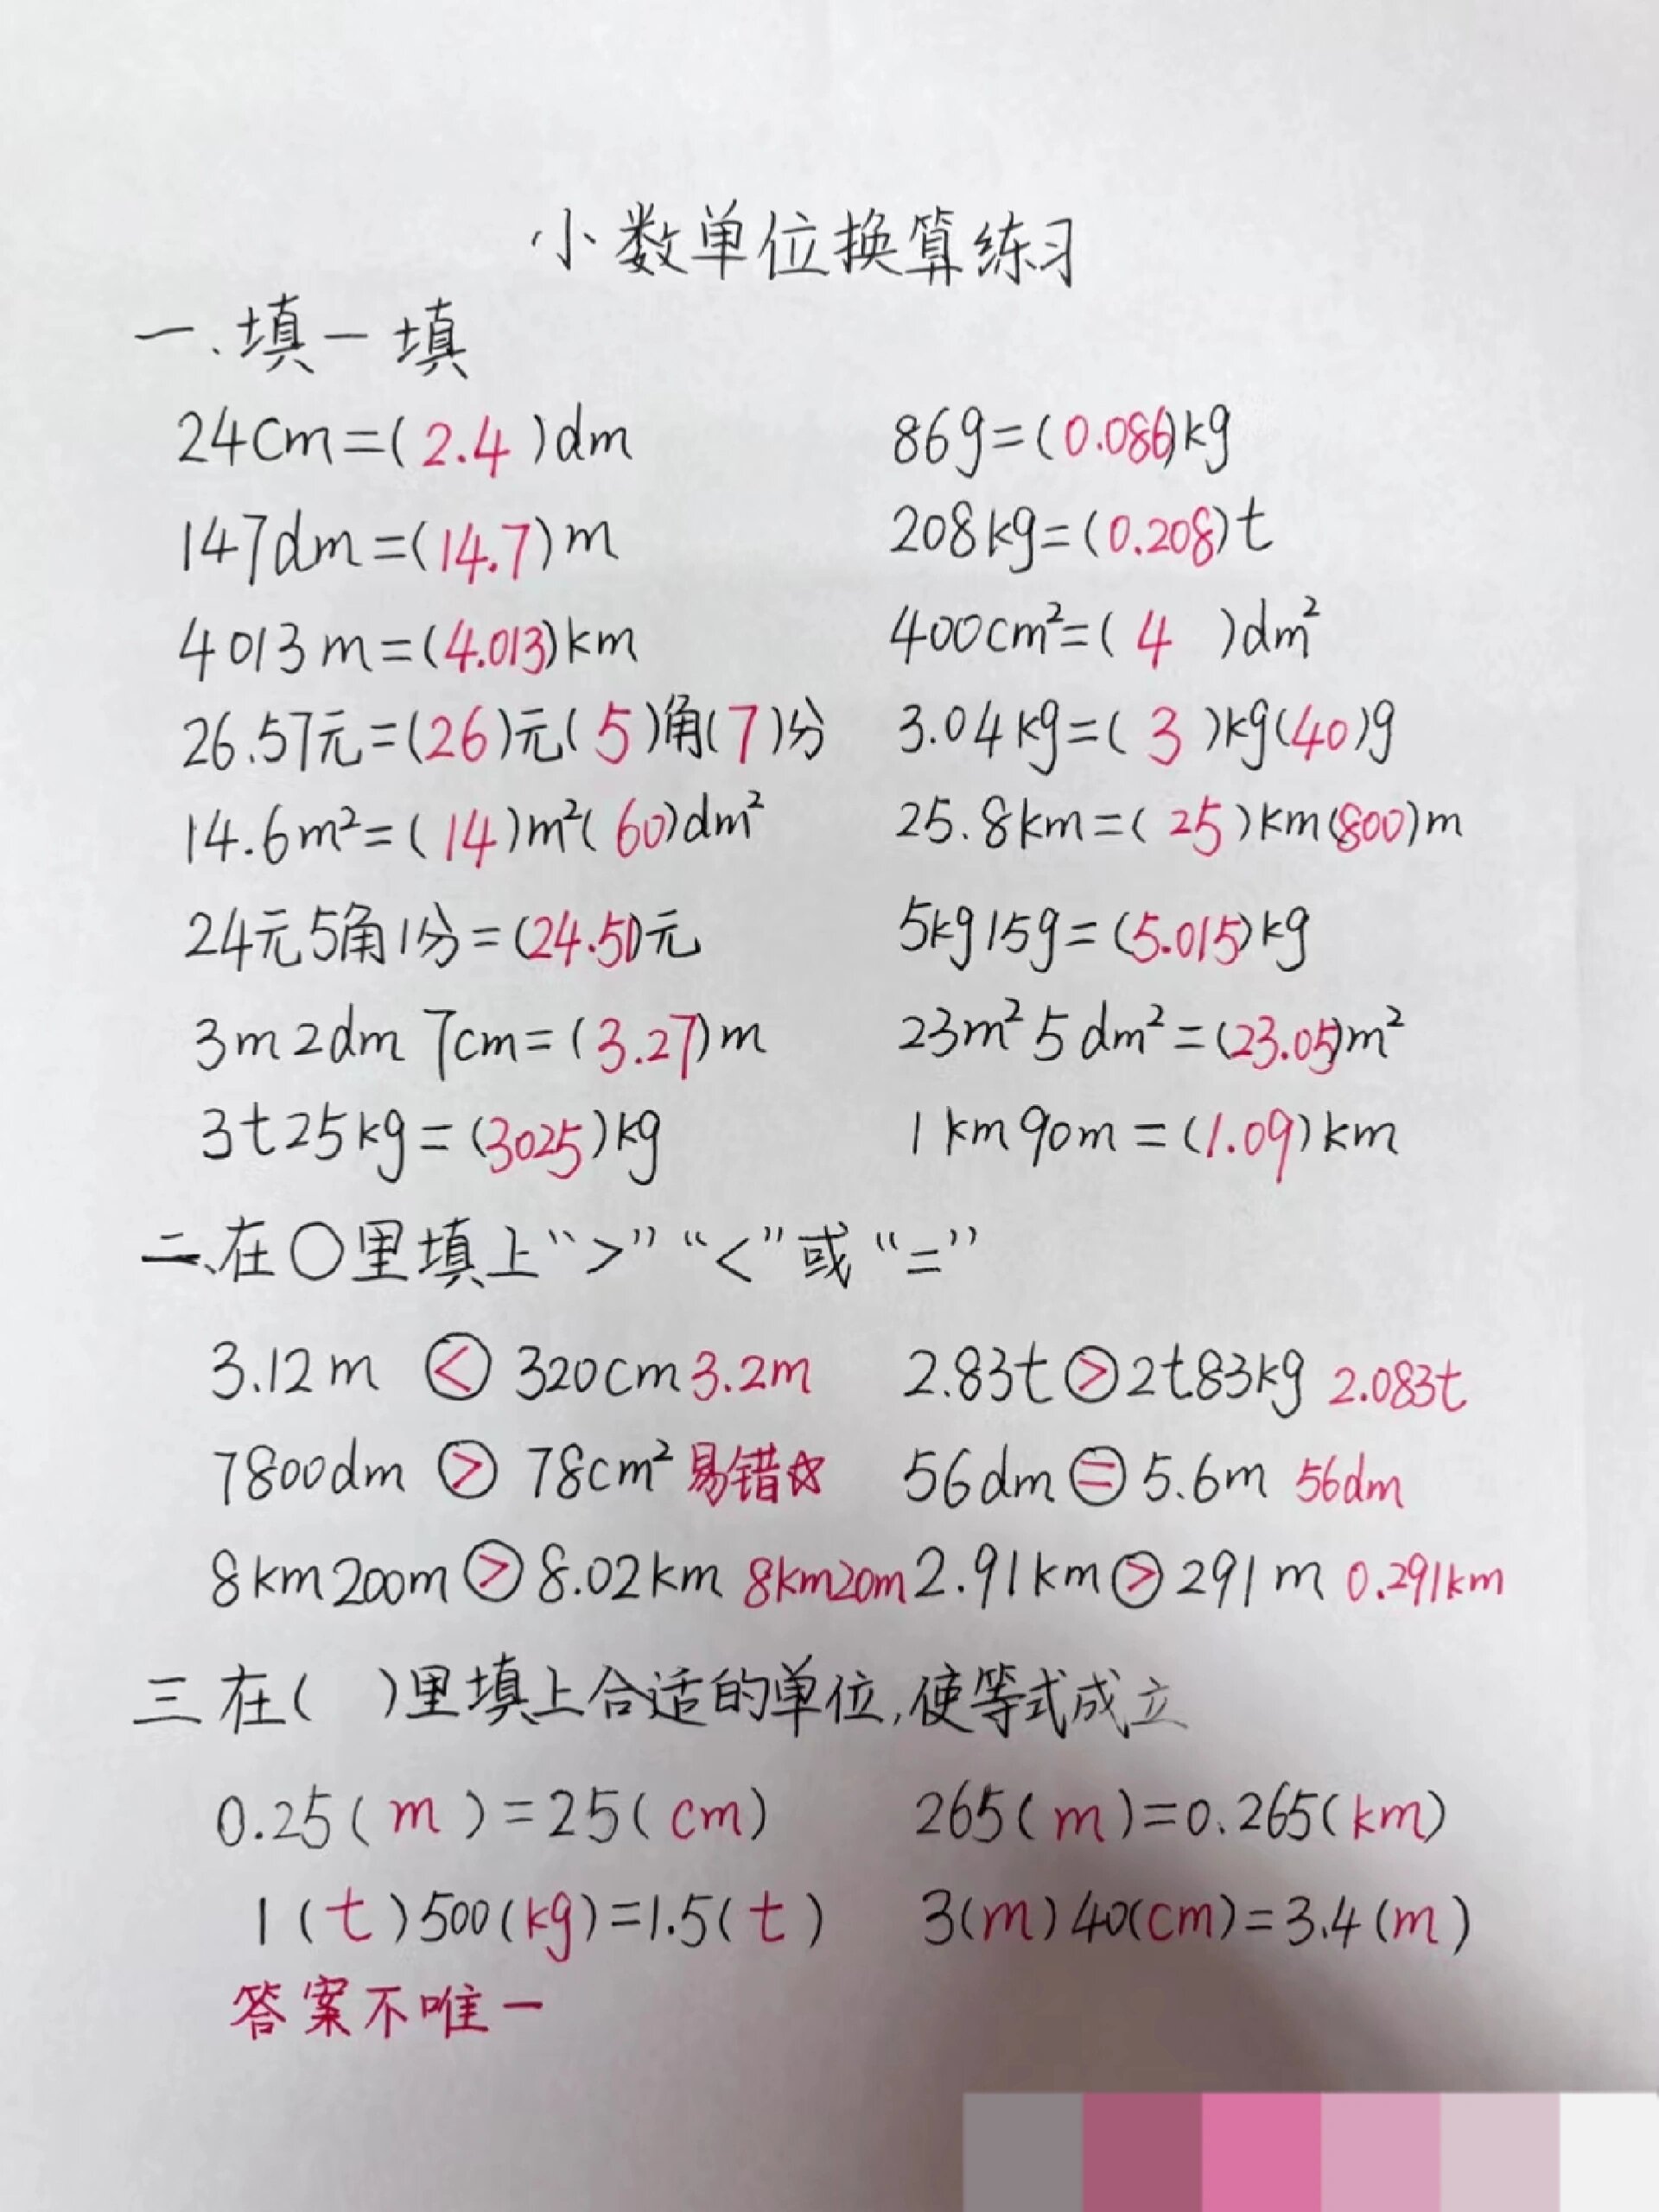 小数单位换算练习
一、填一填
24cm=(2.4)dm 86g=(0.086)kg
147dm=(14.7)m 208kg=(0.208)t
4013m=(4.013)km 400cm²=(4)dm²
26.57元=(26)元(5)角(7)分 3.04kg=(3)kg(40)g
14.6m²=(14)m²(60)dm² 25.8km=(25)km(800)m
24元5角1分=(24.51)元 5kg15g=(5.015)kg
3m2dm7cm=(3.27)m 23m²5dm²=(23.05)m²
3t25kg=(3025)kg 1km90m=(1.09)km
二、在○里填上“>”“<”或“=”
3.12m < 320cm 3.2m 2.83t > 2t83kg 2.083t
7800dm > 78cm² 易错☆ 56dm = 5.6m 56dm
8km200m > 8.02km 8km20m 2.91km > 291m 0.291km
三 在( )里填上合适的单位,使等式成立
0.25(m)=25(cm) 265(m)=0.265(km)
1(t)500(kg)=1.5(t) 3(m)40(cm)=3.4(m)
答案不唯一